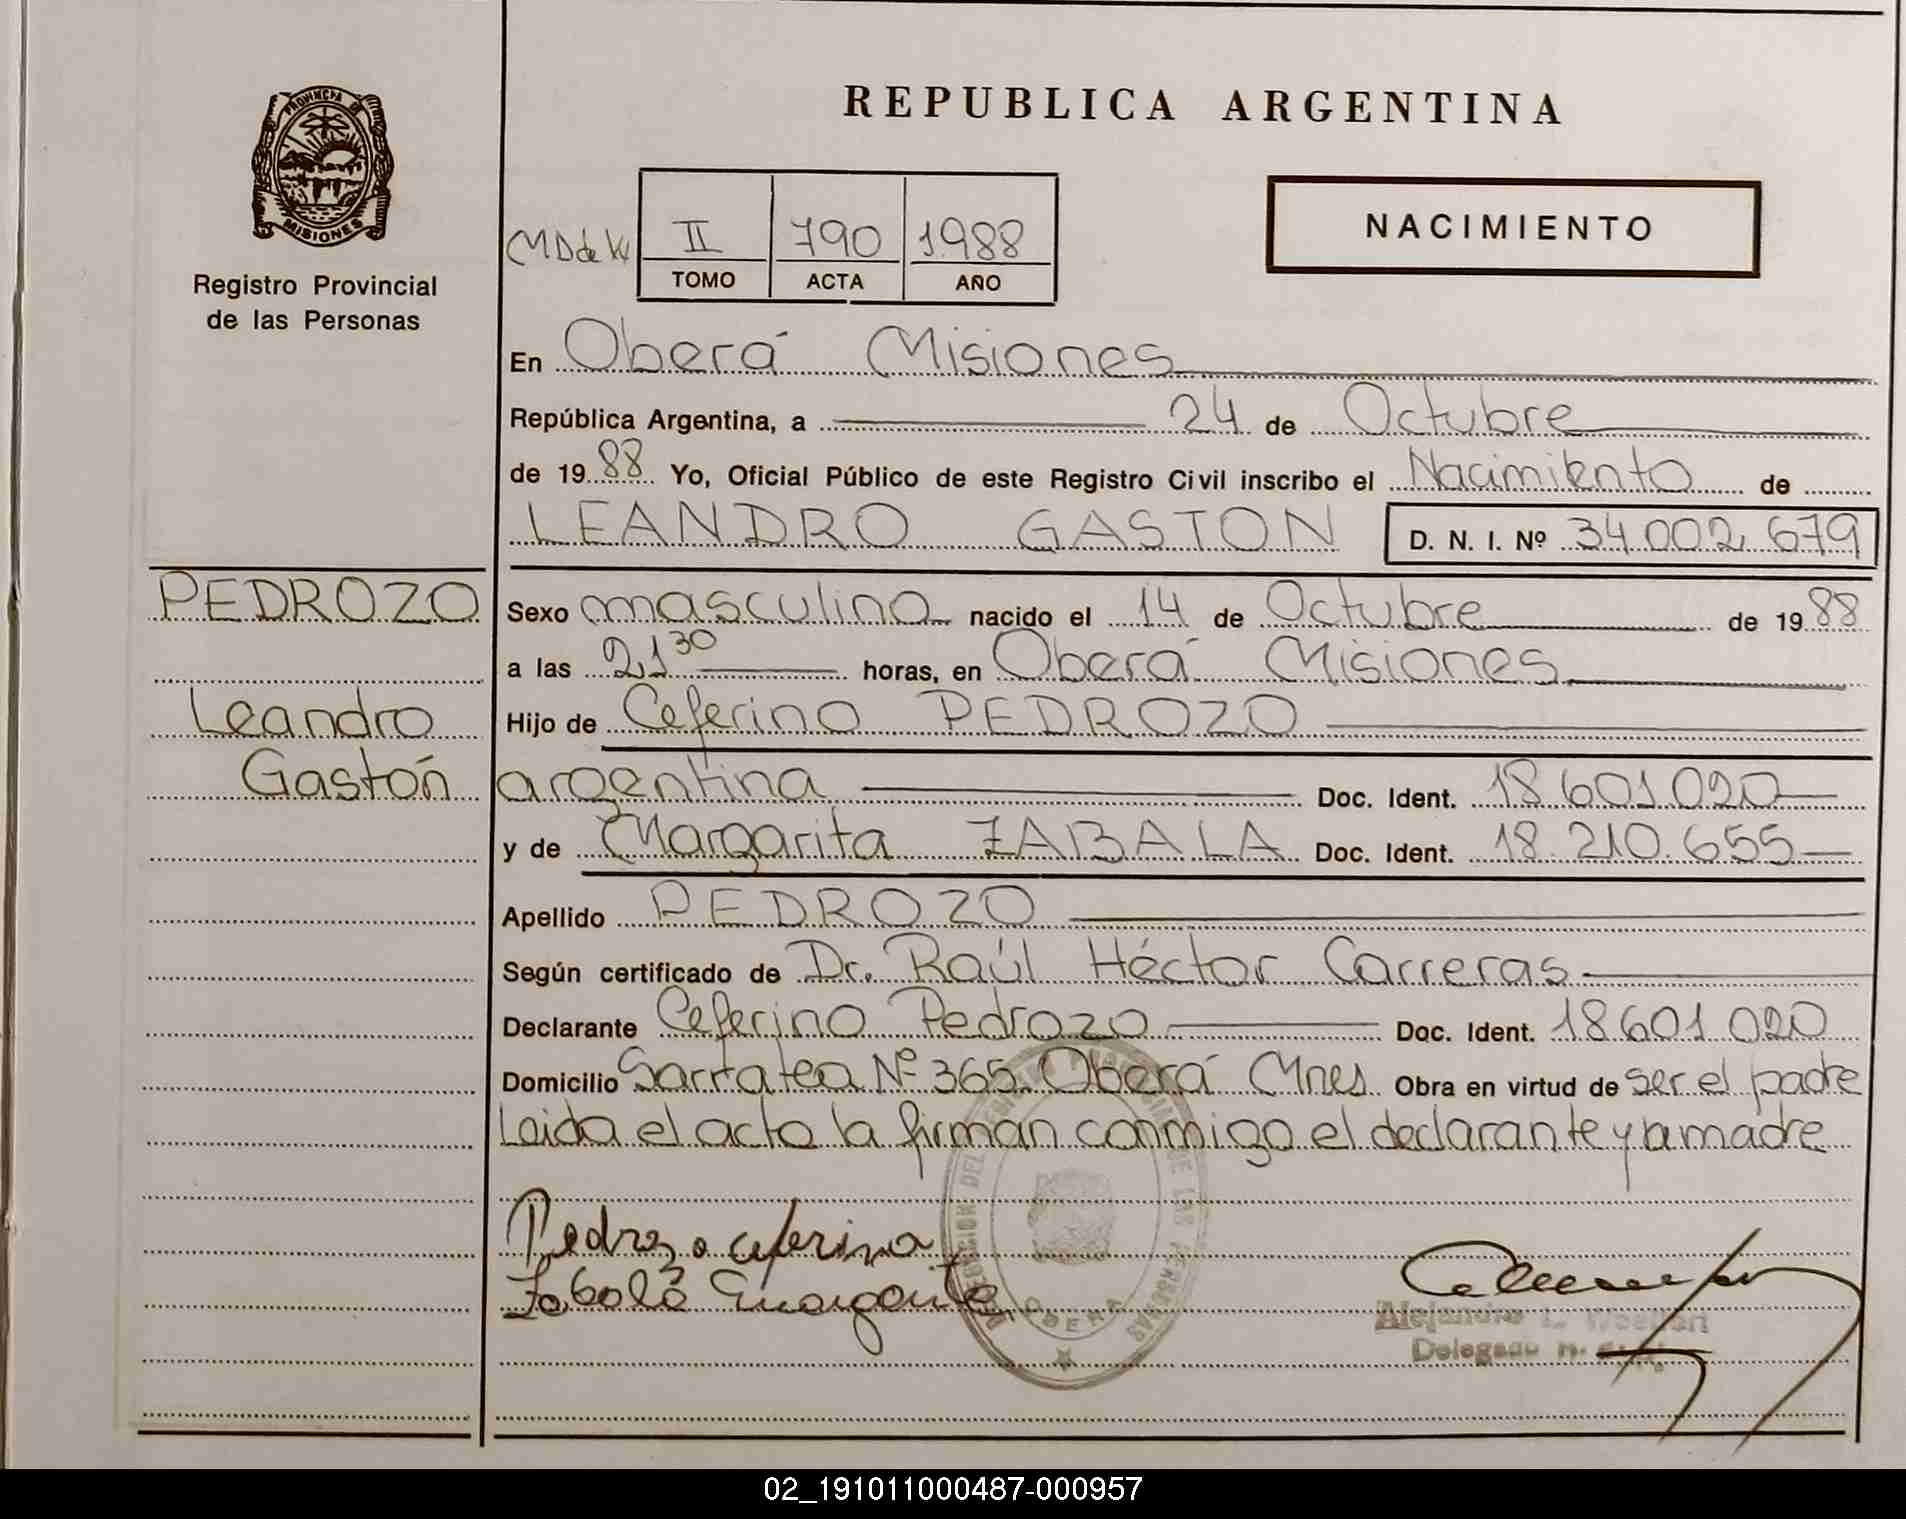 REPUBLICA ARGENTINA
PROVINCIA DE
MISIONES
Registro Provincial
de las Personas
NACIMIENTO
II 790 1988
TOMO ACTA AÑO
En Oberá Misiones
República Argentina, a 24 de Octubre
de 1988 Yo, Oficial Público de este Registro Civil inscribo el Nacimiento de
LEANDRO GASTON D. N. I. Nº 34.002.679
PEDROZO
Leandro
Gastón
Sexo masculino nacido el 14 de Octubre de 1988
a las 21 30 horas, en Oberá Misiones
Hijo de Ceferino PEDROZO
argentina Doc. Ident. 18.601.020
y de Margarita ZABALA Doc. Ident. 18.210.655
Apellido PEDROZO
Según certificado de Dr. Raúl Héctor Carreras
Declarante Ceferino Pedrozo Doc. Ident. 18601020
Domicilio Sarratea Nº 365 Oberá Mnes Obra en virtud de ser el padre
Leida el acta la firman conmigo el declarante y la madre
Pedrozo ceferino
Zabala margarita
DELEGACION DEL REGISTRO PROVINCIAL DE LAS PERSONAS
OBERA
Alejandro L.
Delegado
02_191011000487-000957